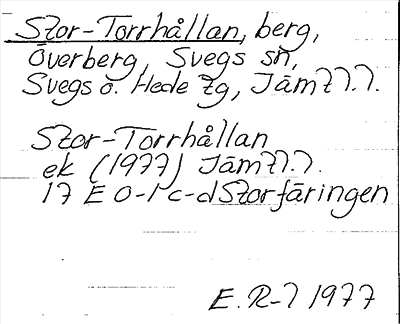 Stor-Torrhållan, berg,
Överberg, Svegs sn,
Svegs o. Hede tg, Jämtl.l.
Stor-Torrhållan
ek (1977) Jämtl.l.
17 E 0-1 c-d Storfäringen
E. R-l 1977